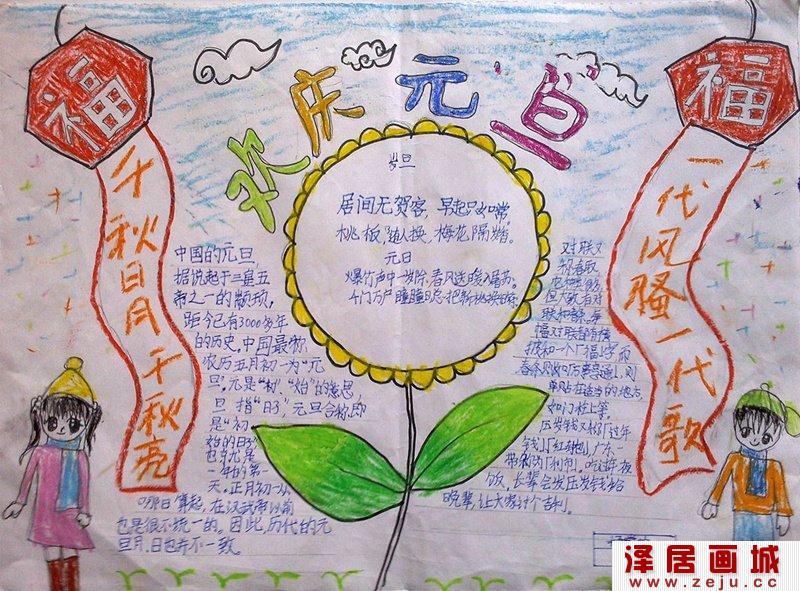 欢庆元旦
福
福
千秋日月千秋亮
一代风骚一代歌
旦
居间无贺客,早起只如常,
桃板,人换,梅花隔
元日
爆竹声中一岁除,春风送暖入屠苏。
门万户瞳瞳日总把新桃换
中国的元旦,
据说起于三皇五
帝之一的颛顼,
距今已有3000多年
的历史。中国最初
农历五月初一为“元
旦”,元是“初”,“始”的意思,
旦指“日子”,元旦合称即
是“初
始的日子”
也就是
一年的第一
天。正月初一从
哪日算起,在汉武帝以前
也是很不统一的。因此,历代的元
旦月、日也并不一致。
对联又
称春
但大致有对
联和
幅对联都有横
披和一个“福”字而
春条则
单贴在适当的地点
如门栓上等。
压岁钱又称「过年
钱」「红包」广东一
带称为「利市」。吃过年夜
饭,长辈会发压岁钱给
晚辈,让大家讨个吉利。
泽居画城
www.zeju.cc